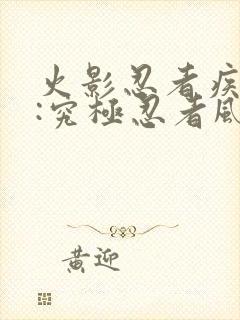 火影忍者疾
:究極忍者風
黃迎